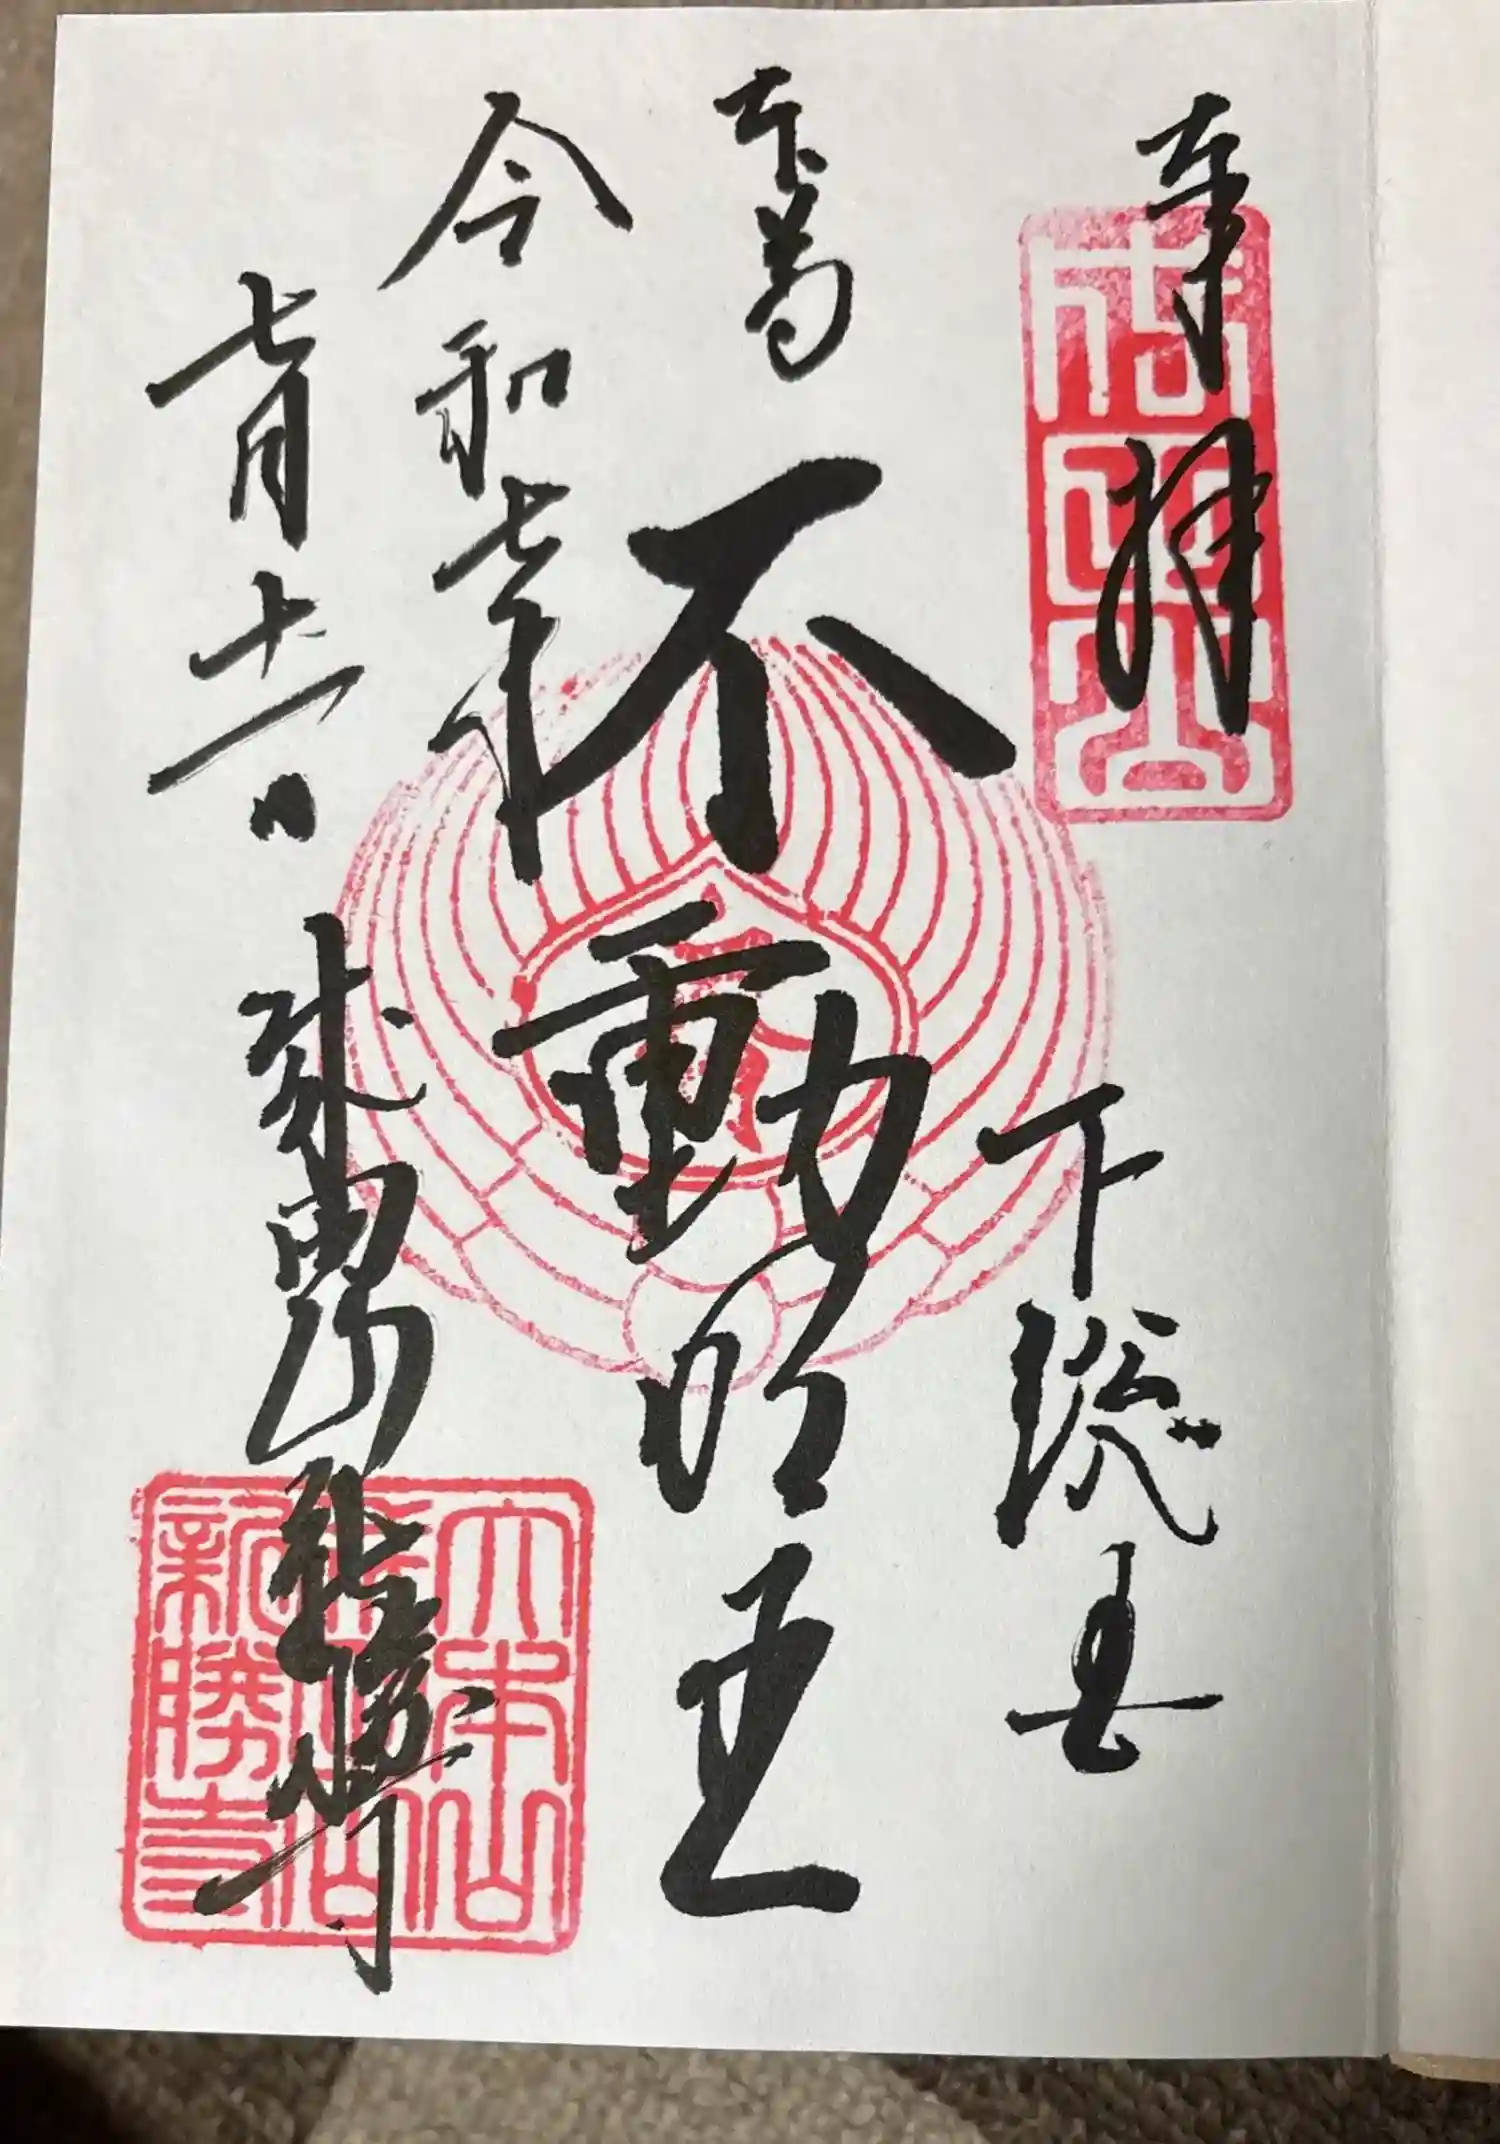 奉拝
成田山
下総
不動明王
令和七年
七月十一日
成田山新勝寺
大本山
成田山
新勝寺